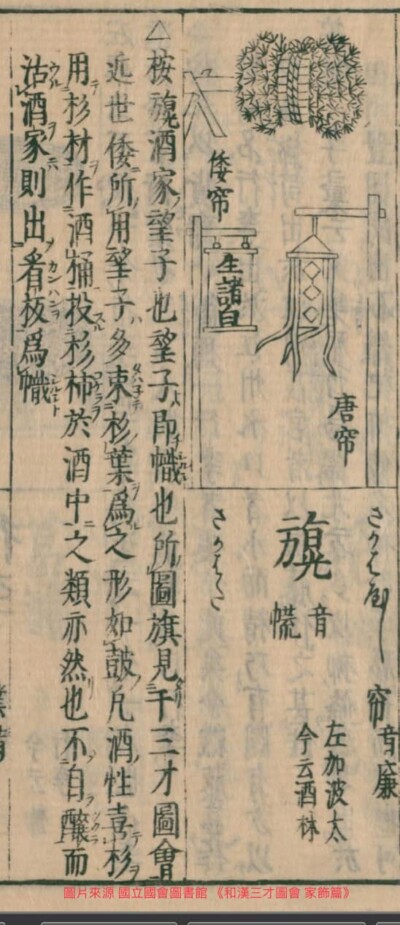 唐帘
倭帘
生諸白
さかばやし
帘 音廉
左加波太
今云酒林
音慌
さかばた
△按酒家望子也望子即幟也所圖旗見于三才圖會
近世倭所用望子多束杉葉爲之形如鼓凡酒性喜杉
用杉材作酒桶投杉柹於酒中之類亦然也不自釀而
沽酒家則出看板爲幟
カンハンヲ
圖片來源 國立國會圖書館 《和漢三才圖會 家飾篇》